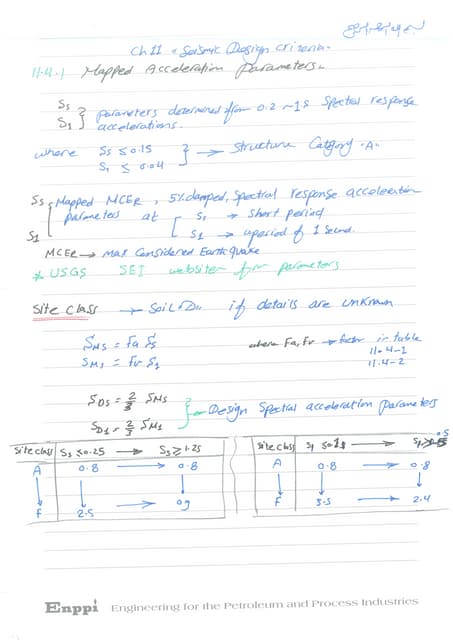 Ch 11 : Seismic Design Criteria.
11.4.1 Mapped Acceleration Parameters.
Ss
S1 } Parameters determined from 0.2 ~ 1s Spectral response
accelerations.
where Ss ≤ 0.15
S1 ≤ 0.04 } → Structure Category .A.
Ss Mapped MCER, 5% damped, Spectral response acceleration
parameters at [ S1 → Short period
S1 [ S1 → period of 1 Second.
MCER → Max Considered EarthQuake
* USGS SEI website for parameters
Site Class → Soil "D" if details are unknown
SMS = Fa Ss where Fa, Fv → factor in table
SM1 = Fv S1 11.4-1
11.4-2
SDS = 2/3 SMS
SD1 = 2/3 SM1 } Design Spectral acceleration parameters
Site class Ss ≤ 0.25 → Ss ≥ 1.25
A 0.8 → 0.8
↓ ↓ ↓
F 2.5 → 0.9
Site class S1 ≤ 0.1 → S1 ≥ 0.5
A 0.8 → 0.8
↓ ↓ ↓
F 3.5 → 2.4
Enppi Engineering for the Petroleum and Process Industries